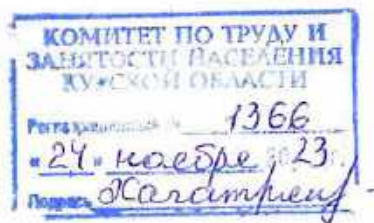 КОМИТЕТ ПО ТРУДУ И
ЗАНЯТОСТИ НАСЕЛЕНИЯ
КУРСКОЙ ОБЛАСТИ
1366
"24" ноября 2023г.
Подпись